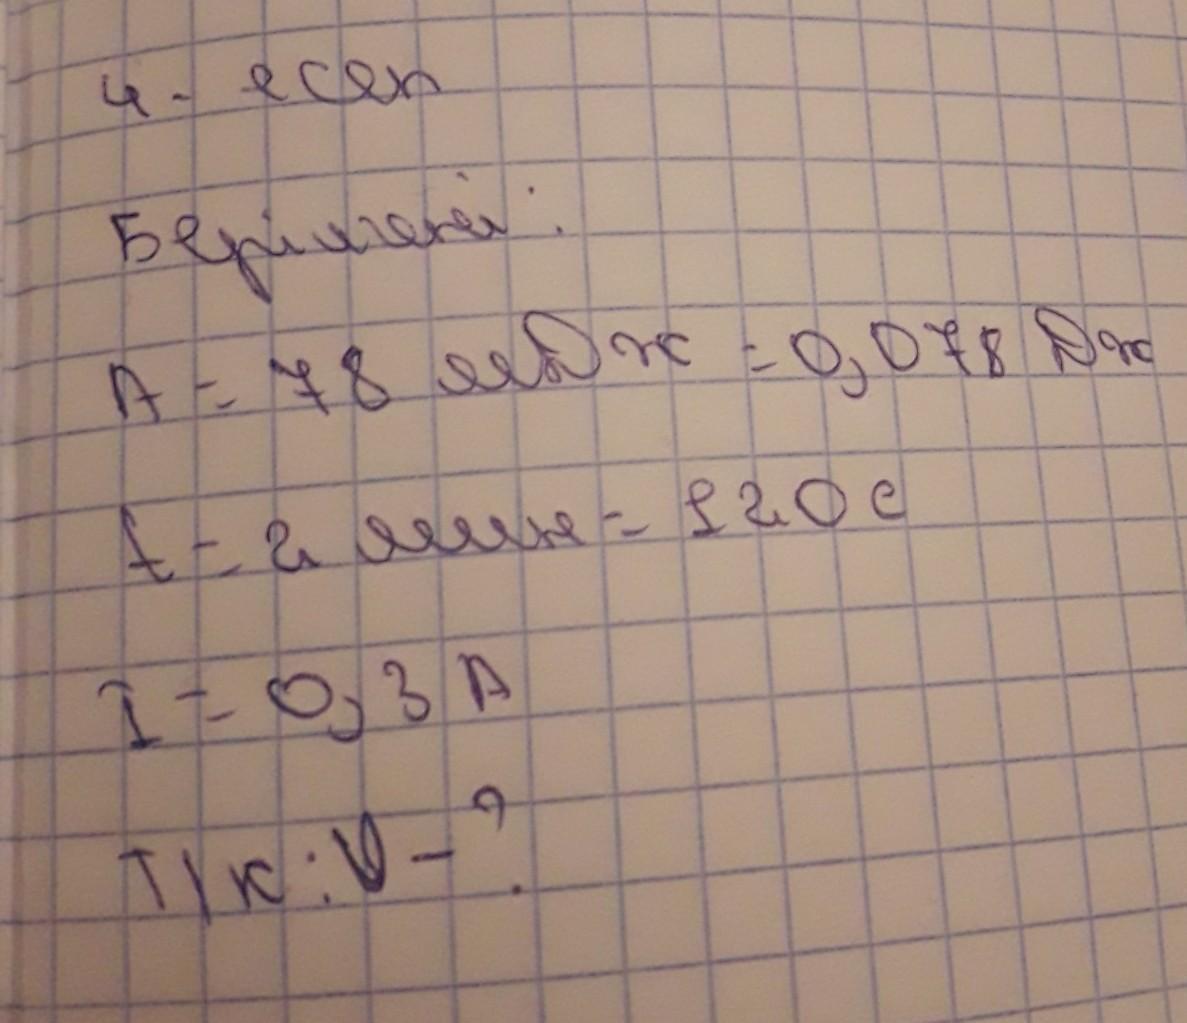 4- есеп
Берілгені:
A = 78 мДж = 0,078 Дж
t = 2 мин = 120 с
I = 0,3 A
Т/к: U - ?